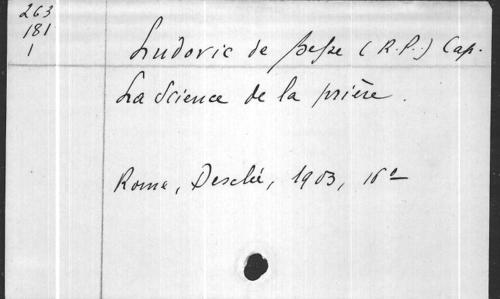 263
181
1
Ludovic de Besse (R.P.) Cap.
La Science de la prière.
Rome, Desclée, 1903, 16º